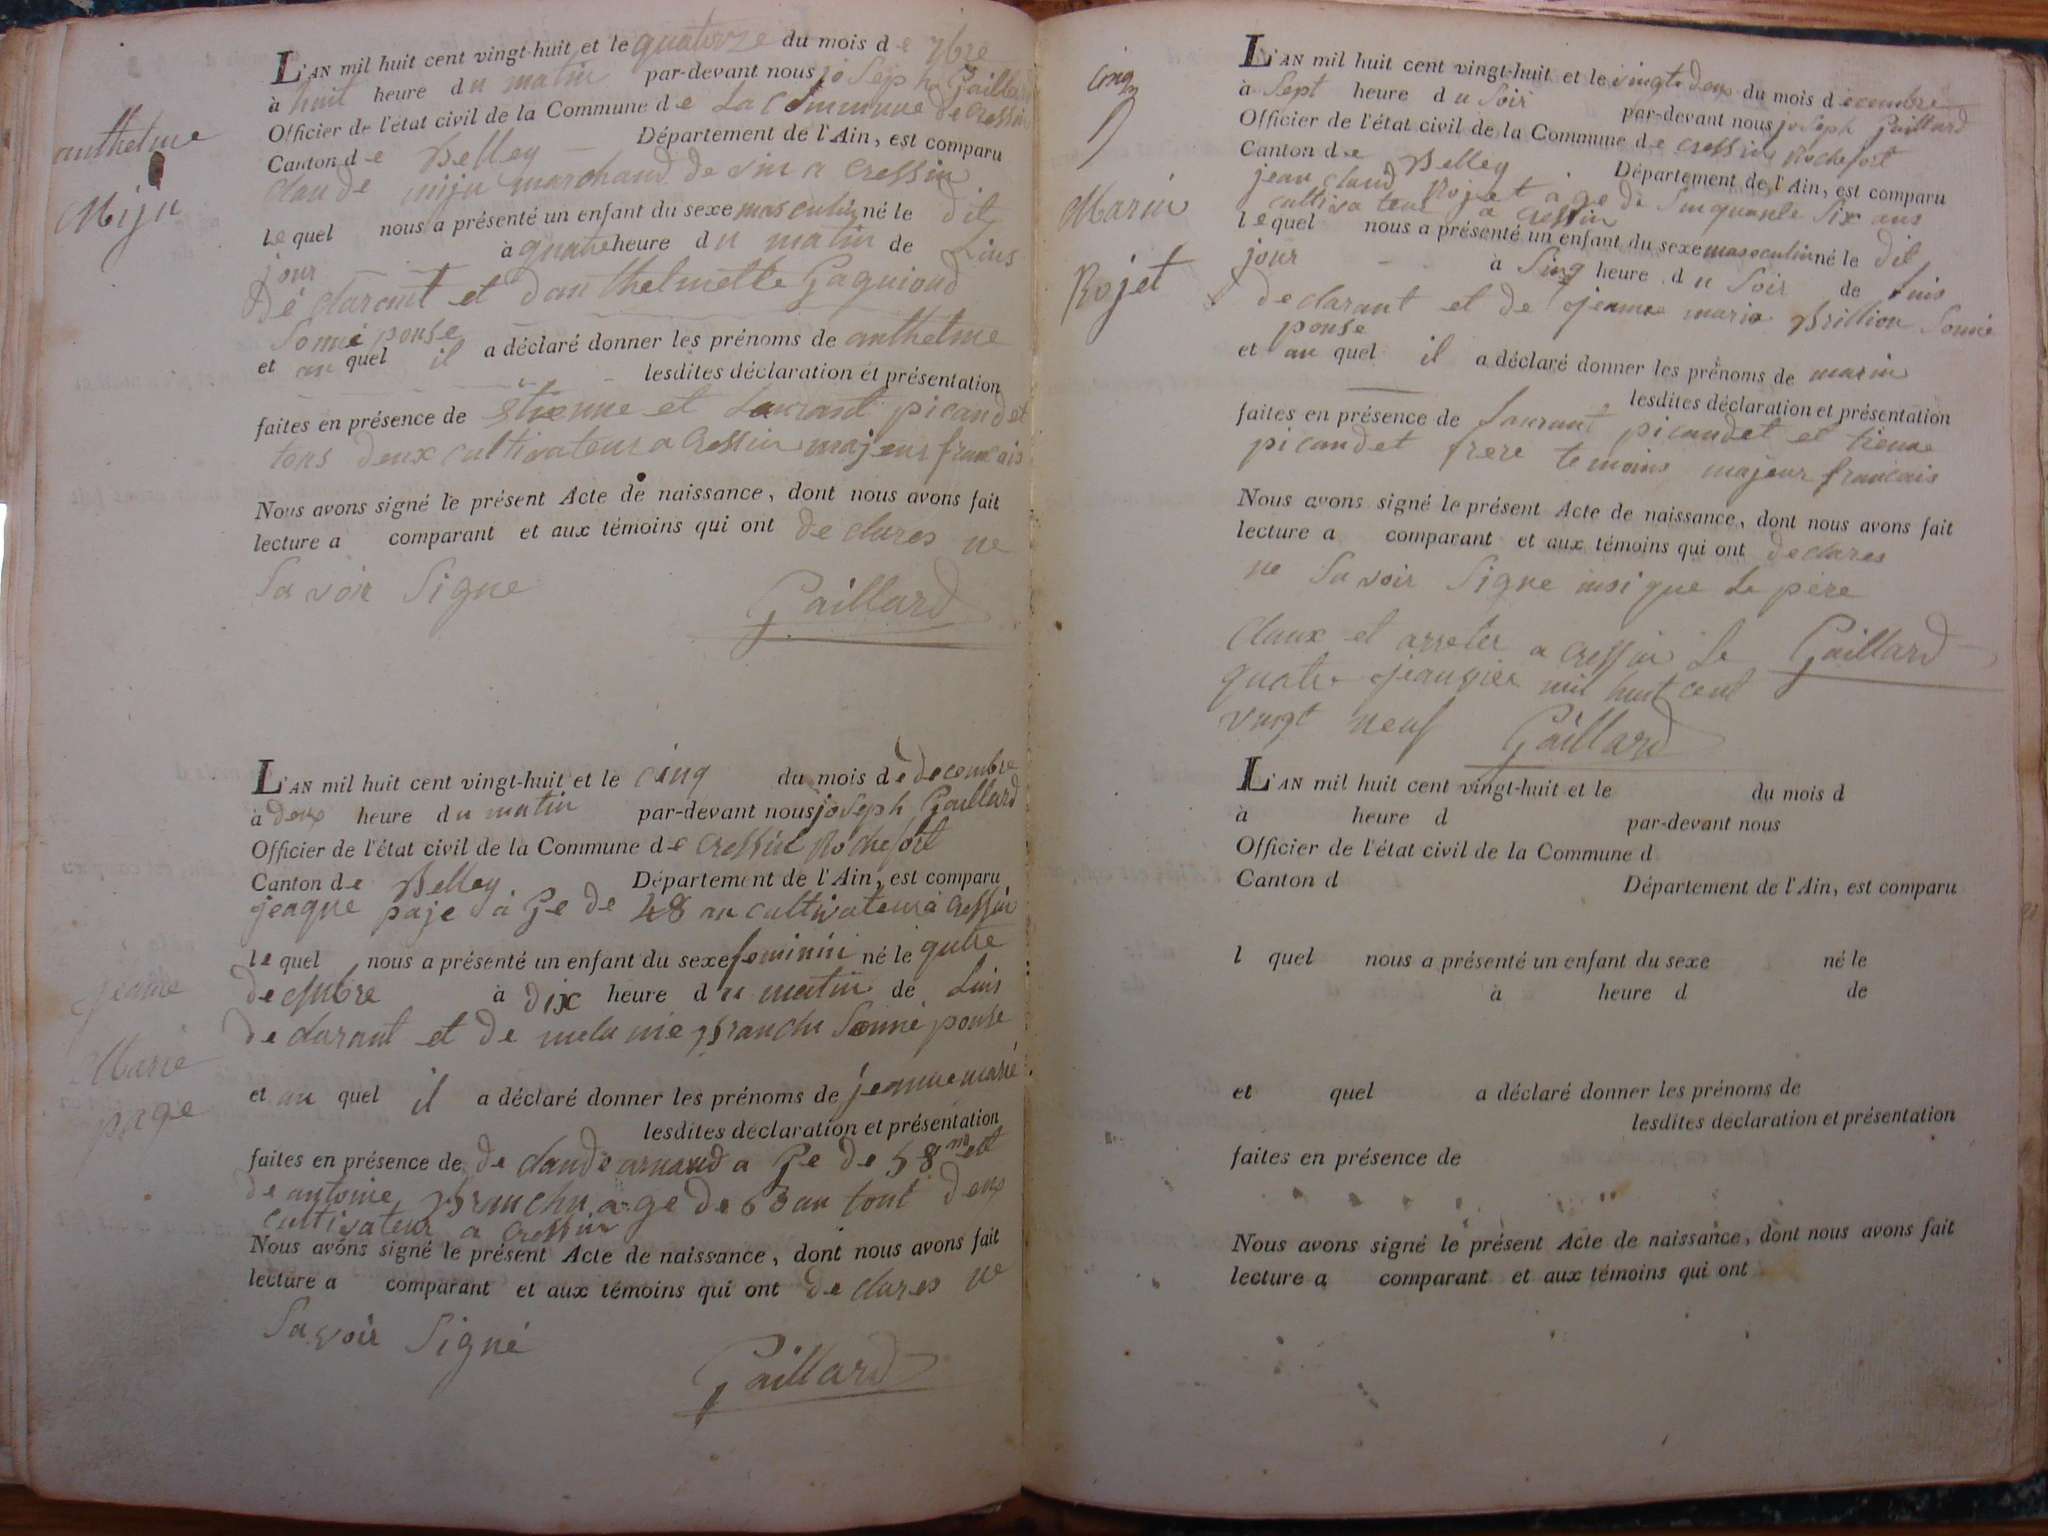 anthelme
Miju
L'AN mil huit cent vingt-huit et le quatorze du mois de 7bre
à huit heure du matin par-devant nous joSeph Gaillard
Officier de l'état civil de la Commune de La Commune de Cressin
Canton de Belley Département de l'Ain, est comparu
claude miju marchand de vin a Cressin
lequel nous a présenté un enfant du sexe masculin né le dit
jour à quatre heure du matin de Luis
déclarent et danthelmette Gaguioud
Sonné ponse
et au quel il a déclaré donner les prénoms de anthelme
lesdites déclaration et présentation
faites en présence de étienne et Laurant picandet
tous deux cultivateur a Cressin majeur francais
Nous avons signé le présent Acte de naissance, dont nous avons fait
lecture a comparant et aux témoins qui ont declares ne
Savoir Signe
Gaillard
jeanne
Marie
page
L'AN mil huit cent vingt-huit et le cinq du mois de decembre
à deux heure du matin par-devant nous joSeph Gaillard
Officier de l'état civil de la Commune de Cressin Rochefort
Canton de Belley Département de l'Ain, est comparu
jeaque paje à Ge de 48 an cultivateur à Cressin
lequel nous a présenté un enfant du sexe feminin né le
à dix heure du matin de Luis
declarant et de melanie Branchu Sonné ponse
et au quel il a déclaré donner les prénoms de jeanne marie
lesdites déclaration et présentation
faites en présence de de claude arnaud a Ge de 58
de antoine Branchu age de 63 an tout deux
cultivateur a Cressin
Nous avons signé le présent Acte de naissance, dont nous avons fait
lecture a comparant et aux témoins qui ont declares ne
Savoir Signé
Gaillard
Marin
Rojet
L'AN mil huit cent vingt-huit et le vingt deux du mois decembre
à Sept heure du Soir par-devant nous joSeph Gaillard
Officier de l'état civil de la Commune de Cressin Rochefort
Canton de Belley Département de l'Ain, est comparu
jean claud Rojet àge de Sinquante Six ans
cultivateur a Cressin
lequel nous a présenté un enfant du sexe masculin né le dit
jour à Sinq heure du Soir de Luis
declarant et de jeanne marie Brillion Sonné
ponse
et au quel il a déclaré donner les prénoms de marin
lesdites déclaration et présentation
faites en présence de Laurant picandet et tienne
picandet frere temoins majeur francais
Nous avons signé le présent Acte de naissance, dont nous avons fait
lecture a comparant et aux témoins qui ont declares
ne Savoir Signe insi que Le père
Claux et arreter a Cressin Le Gaillard
quatre jeanvier mil huit cent
vingt neuf Gaillard
L'AN mil huit cent vingt-huit et le du mois d
à heure d par-devant nous
Officier de l'état civil de la Commune d
Canton d Département de l'Ain, est comparu
l quel nous a présenté un enfant du sexe né le
à heure d de
et quel a déclaré donner les prénoms de
lesdites déclaration et présentation
faites en présence de
Nous avons signé le présent Acte de naissance, dont nous avons fait
lecture a comparant et aux témoins qui ont